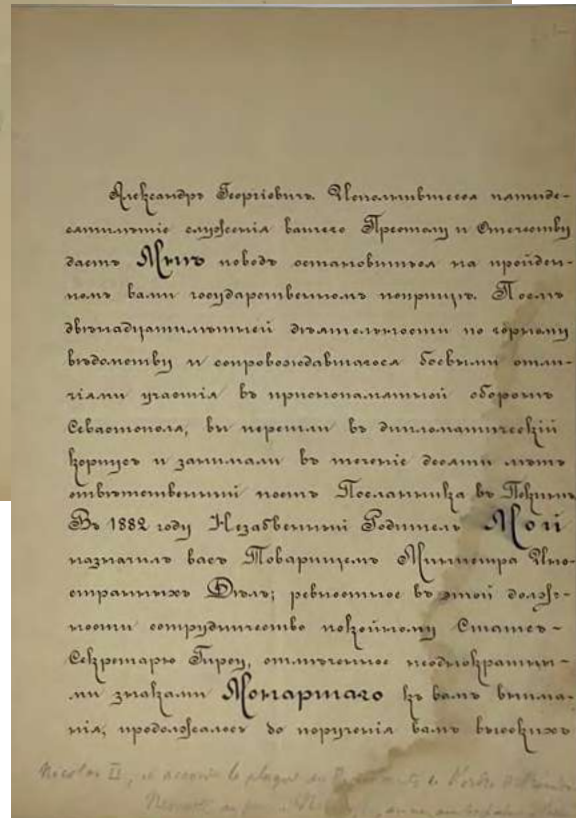 Александръ Георгіевичъ. Исполнившееся пятиде-
сятилѣтіе служенія вашего Престолу и Отечеству
даетъ Мнѣ поводъ остановиться на пройден-
номъ вами государственномъ поприщѣ. Послѣ
двѣнадцатилѣтней дѣятельности по горному
вѣдомству и сопровождавшагося боевыми отли-
чіями участія въ приснопамятной оборонѣ
Севастополя, вы перешли въ дипломатическій
корпусъ и занимали въ теченіе десяти лѣтъ
отвѣтственный постъ Посланника въ Пекинѣ
Въ 1882 году Незабвенный Родитель Мой
назначилъ васъ Товарищемъ Министра Ино-
странныхъ Дѣлъ; ревностное въ этой долж-
ности сотрудничество покойному Статсъ-
Секретарю Гирсу, отмѣченное неоднократны-
ми знаками Монаршаго къ вамъ внима-
нія, продолжалось до порученія вамъ высокихъ
Nicolas II, et accorde la plaque en de l'ordre